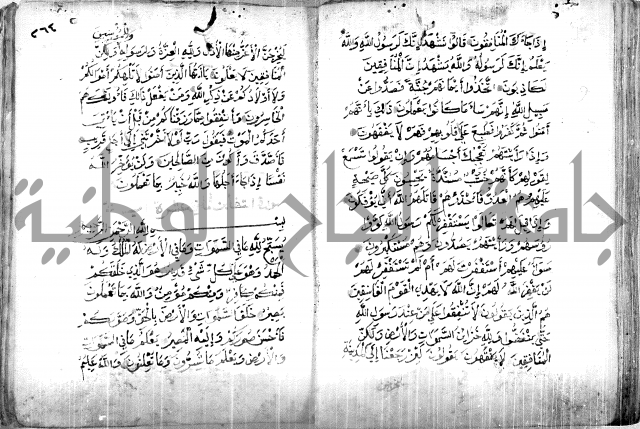 إذا جاءك المنافقون قالوا نشهد إنك لرسول الله والله
يعلم إنك لرسوله والله يشهد إن المنافقين
لكاذبون اتخذوا أيمانهم جنة فصدوا عن
سبيل الله إنهم ساء ما كانوا يعملون ذلك بأنهم
آمنوا ثم كفروا فطبع على قلوبهم فهم لا يفقهون
وإذا رأيتهم تعجبك أجسامهم وإن يقولوا تسمع
لقولهم كأنهم خشب مسندة يحسبون كل صيحة
عليهم هم العدو فاحذرهم قاتلهم الله أنى يؤفكون
وإذا قيل لهم تعالوا يستغفر لكم رسول الله لووا
رءوسهم ورأيتهم يصدون وهم مستكبرون
سواء عليهم أستغفرت لهم أم لم تستغفر لهم
لن يغفر الله لهم إن الله لا يهدي القوم الفاسقين
هم الذين يقولون لا تنفقوا على من عند رسول الله
حتى ينفضوا ولله خزائن السموات والأرض ولكن
المنافقين لا يفقهون يقولون لئن رجعنا إلى المدينة
٣٦٢
ليخرجن الأعز منها الأذل ولله العزة ولرسوله
وللمؤمنين ولكن
المنافقين لا يعلمون يا أيها الذين آمنوا لا تلهكم أموالكم
ولا أولادكم عن ذكر الله ومن يفعل ذلك فأولئك هم
الخاسرون وأنفقوا مما رزقناكم من قبل أن يأتي
أحدكم الموت فيقول رب لولا أخرتني إلى أجل قريب
فأصدق وأكون من الصالحين ولن يؤخر الله
نفسا إذا جاء أجلها والله خبير بما تعملون
بسم الله الرحمن الرحيم
يسبح لله ما في السموات وما في الأرض له الملك وله
الحمد وهو على كل شيء قدير هو الذي خلقكم
فمنكم كافر ومنكم مؤمن والله بما تعملون
بصير خلق السموات والأرض بالحق وصوركم
فأحسن صوركم وإليه المصير يعلم ما في السموات
والأرض ويعلم ما تسرون وما تعلنون والله عليم
جامعة النجاح الوطنية